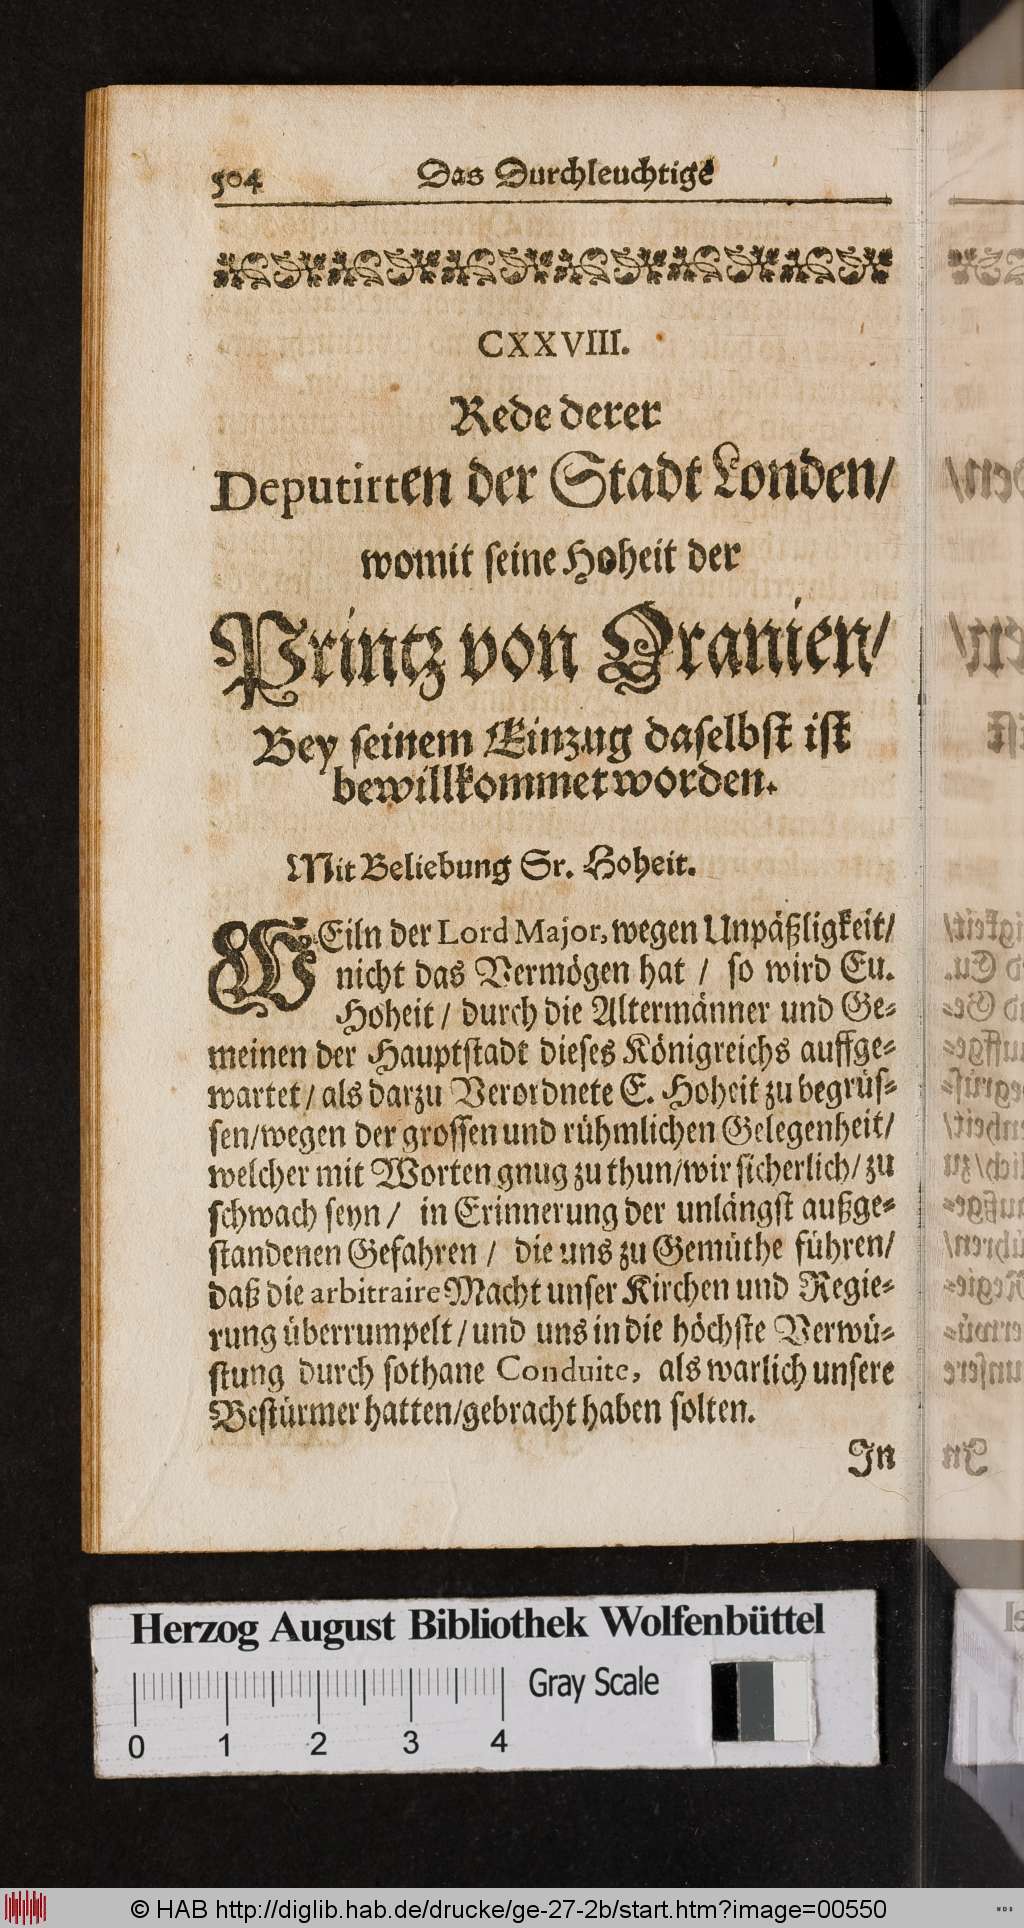 504 Das Durchleuchtige
CXXVIII.
Rede derer
Deputirten der Stadt Londen/
womit seine Hoheit der
Printz von Oranien/
Bey seinem Einzug daselbst ist
bewillkommet worden.
Mit Beliebung Sr. Hoheit.
WEiln der Lord Major, wegen Unpäßligkeit/
nicht das Vermögen hat / so wird Eu.
Hoheit / durch die Altermänner und Ge-
meinen der Hauptstadt dieses Königreichs auffge-
wartet / als darzu Verordnete E. Hoheit zu begrüs-
sen/wegen der grossen und rühmlichen Gelegenheit/
welcher mit Worten gnug zu thun/wir sicherlich/ zu
schwach seyn / in Erinnerung der unlängst außge-
standenen Gefahren / die uns zu Gemüthe führen/
daß die arbitraire Macht unser Kirchen und Regie-
rung überrumpelt / und uns in die höchste Verwü-
stung durch sothane Conduite, als warlich unsere
Bestürmer hatten/gebracht haben solten.
In
Herzog August Bibliothek Wolfenbüttel
Gray Scale
0 1 2 3 4
© HAB http://diglib.hab.de/drucke/ge-27-2b/start.htm?image=00550